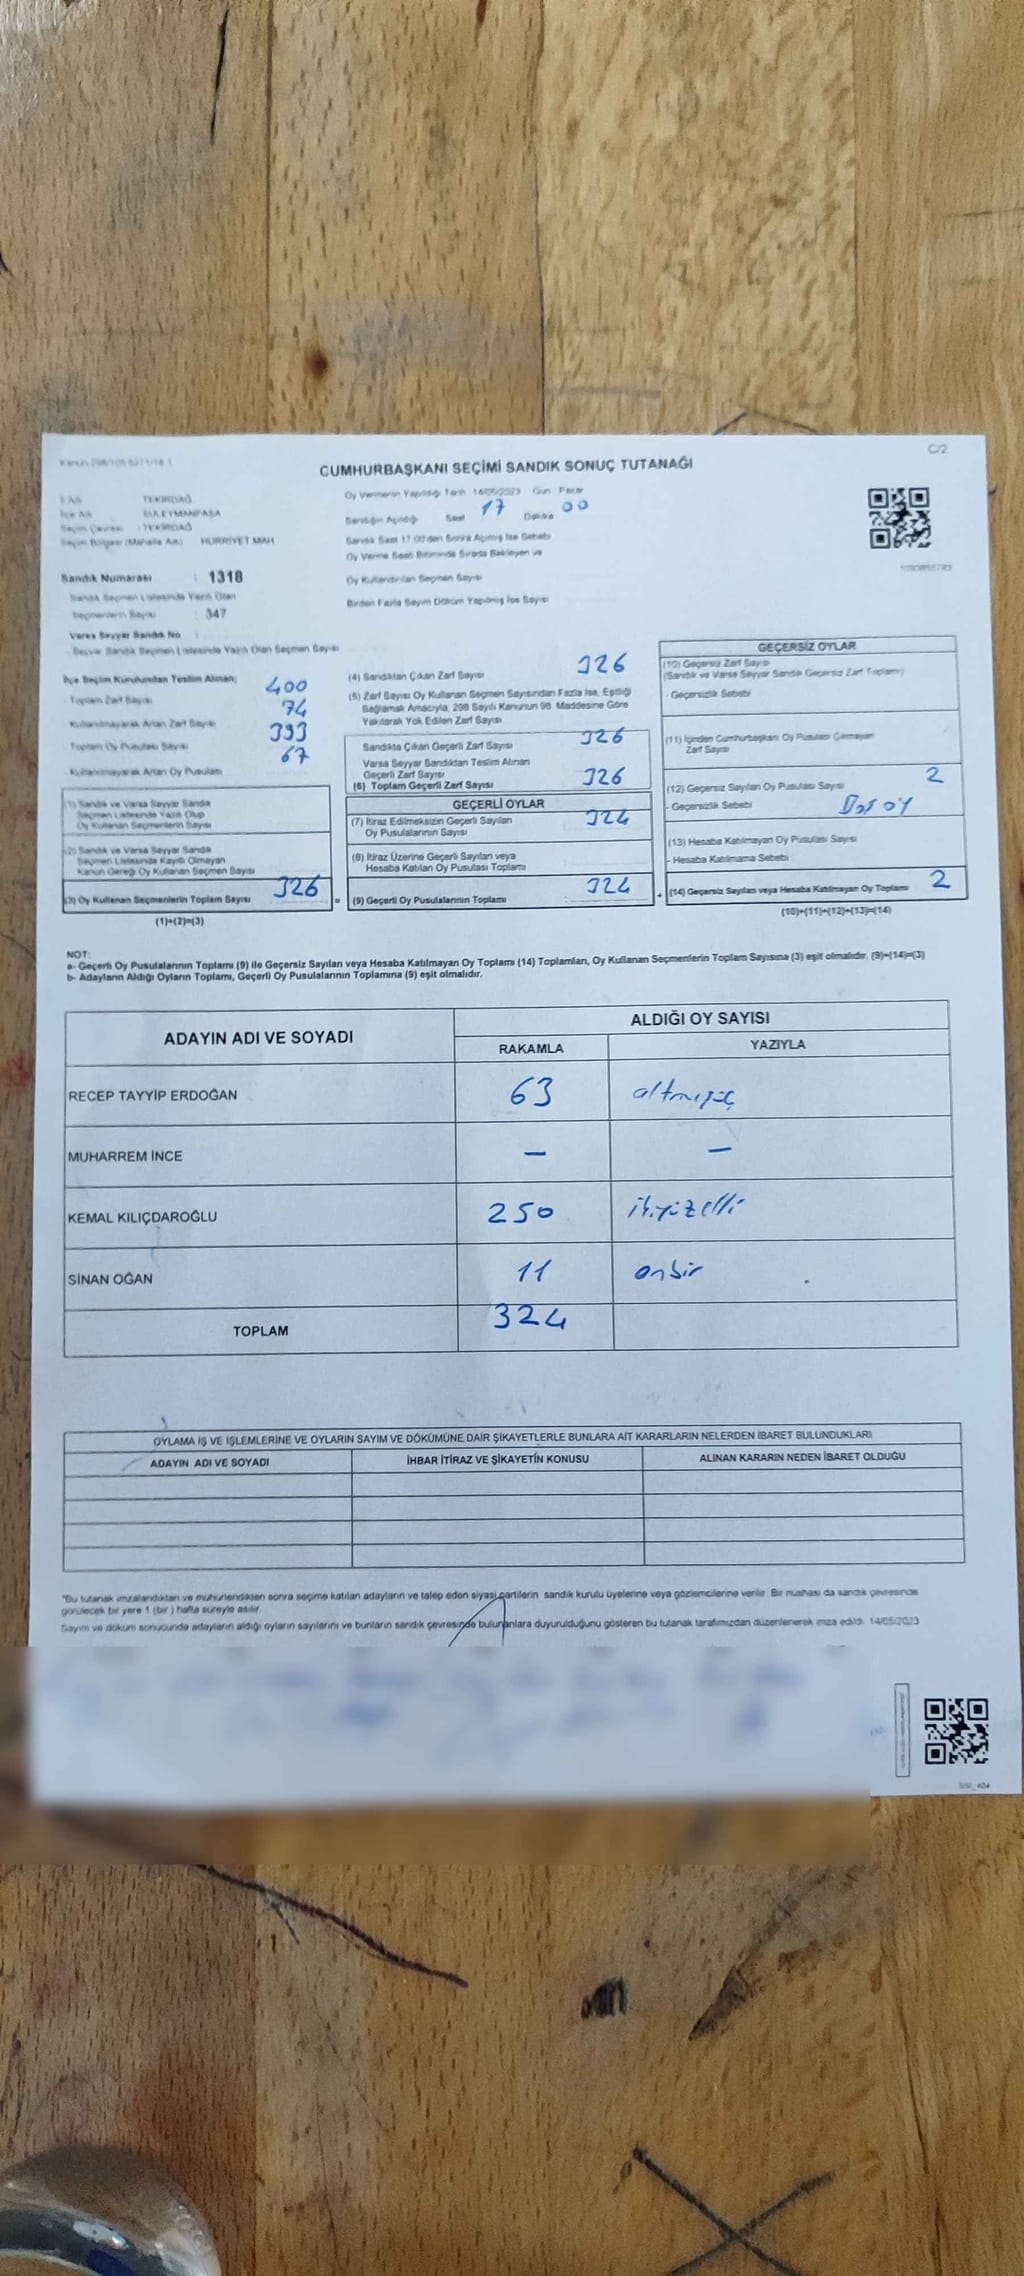 C/2
CUMHURBAŞKANI SEÇİMİ SANDIK SONUÇ TUTANAĞI
İl Adı TEKİRDAĞ
İlçe Adı SÜLEYMANPAŞA
Seçim Çevresi : TEKİRDAĞ
Seçim Bölgesi (Mahalle Adı) HÜRRİYET MAH.
Sandık Numarası : 1318
Sandık Seçmen Listesinde Yazılı Olan
Seçmenlerin Sayısı : 347
Varsa Seyyar Sandık No :
- Seyyar Sandık Seçmen Listesinde Yazılı Olan Seçmen Sayısı
Oy Vermenin Yapıldığı Tarih 14/05/2023 Gün Pazar
Sandığın Açıldığı Saat 17 Dakika 00
Sandık Saat 17:00'den Sonra Açılmış İse Sebebi
Oy Verme Saati Bitiminde Sırada Bekleyen ve
Oy Kullandırılan Seçmen Sayısı
Birden Fazla Sayım Döküm Yapılmış İse Sayısı
İlçe Seçim Kurulundan Teslim Alınan;
- Toplam Zarf Sayısı 400
- Kullanılmayarak Artan Zarf Sayısı 74
- Toplam Oy Pusulası Sayısı 393
- Kullanılmayarak Artan Oy Pusulası 67
(1) Sandık ve Varsa Seyyar Sandık
Seçmen Listesinde Yazılı Olup
Oy Kullanan Seçmenlerin Sayısı
(2) Sandık ve Varsa Seyyar Sandık
Seçmen Listesinde Kayıtlı Olmayan
Kanun Gereği Oy Kullanan Seçmen Sayısı
(3) Oy Kullanan Seçmenlerin Toplam Sayısı 326 =
(1)+(2)=(3)
(4) Sandıktan Çıkan Zarf Sayısı 326
(5) Zarf Sayısı Oy Kullanan Seçmen Sayısından Fazla İse, Eşitliği
Sağlamak Amacıyla, 298 Sayılı Kanunun 98. Maddesine Göre
Yakılarak Yok Edilen Zarf Sayısı
Sandıkta Çıkan Geçerli Zarf Sayısı 326
Varsa Seyyar Sandıktan Teslim Alınan
Geçerli Zarf Sayısı
(6) Toplam Geçerli Zarf Sayısı 326
GEÇERLİ OYLAR
(7) İtiraz Edilmeksizin Geçerli Sayılan
Oy Pusulalarının Sayısı 324
(8) İtiraz Üzerine Geçerli Sayılan veya
Hesaba Katılan Oy Pusulası Toplamı
(9) Geçerli Oy Pusulalarının Toplamı : 324 +
GEÇERSİZ OYLAR
(10) Geçersiz Zarf Sayısı
(Sandık ve Varsa Seyyar Sandık Geçersiz Zarf Toplamı)
- Geçersizlik Sebebi
(11) İçinden Cumhurbaşkanı Oy Pusulası Çıkmayan
Zarf Sayısı
(12) Geçersiz Sayılan Oy Pusulası Sayısı 2
- Geçersizlik Sebebi
(13) Hesaba Katılmayan Oy Pusulası Sayısı
- Hesaba Katılmama Sebebi
(14) Geçersiz Sayılan veya Hesaba Katılmayan Oy Toplamı 2
(10)+(11)+(12)+(13)=(14)
NOT:
a- Geçerli Oy Pusulalarının Toplamı (9) ile Geçersiz Sayılan veya Hesaba Katılmayan Oy Toplamı (14) Toplamları, Oy Kullanan Seçmenlerin Toplam Sayısına (3) eşit olmalıdır. (9)+(14)=(3)
b- Adayların Aldığı Oyların Toplamı, Geçerli Oy Pusulalarının Toplamına (9) eşit olmalıdır.
ADAYIN ADI VE SOYADI
ALDIĞI OY SAYISI
RAKAMLA YAZIYLA
RECEP TAYYİP ERDOĞAN 63 altmışüç
MUHARREM İNCE — —
KEMAL KILIÇDAROĞLU 250 ikiyüzelli
SİNAN OĞAN 11 onbir
TOPLAM 324
OYLAMA İŞ VE İŞLEMLERİNE VE OYLARIN SAYIM VE DÖKÜMÜNE DAİR ŞİKAYETLERLE BUNLARA AİT KARARLARIN NELERDEN İBARET BULUNDUKLARI
ADAYIN ADI VE SOYADI İHBAR İTİRAZ VE ŞİKAYETİN KONUSU ALINAN KARARIN NEDEN İBARET OLDUĞU
"Bu tutanak imzalandıktan ve mühürlendikten sonra seçime katılan adayların ve talep eden siyasi partilerin sandık kurulu üyelerine veya gözlemcilerine verilir. Bir nüshası da sandık çevresinde
görülecek bir yere 1 (bir) hafta süreyle asılır.
Sayım ve döküm sonucunda adayların aldığı oyların sayılarını ve bunların sandık çevresinde bulunanlara duyurulduğunu gösteren bu tutanak tarafımızdan düzenlenerek imza edildi. 14/05/2023